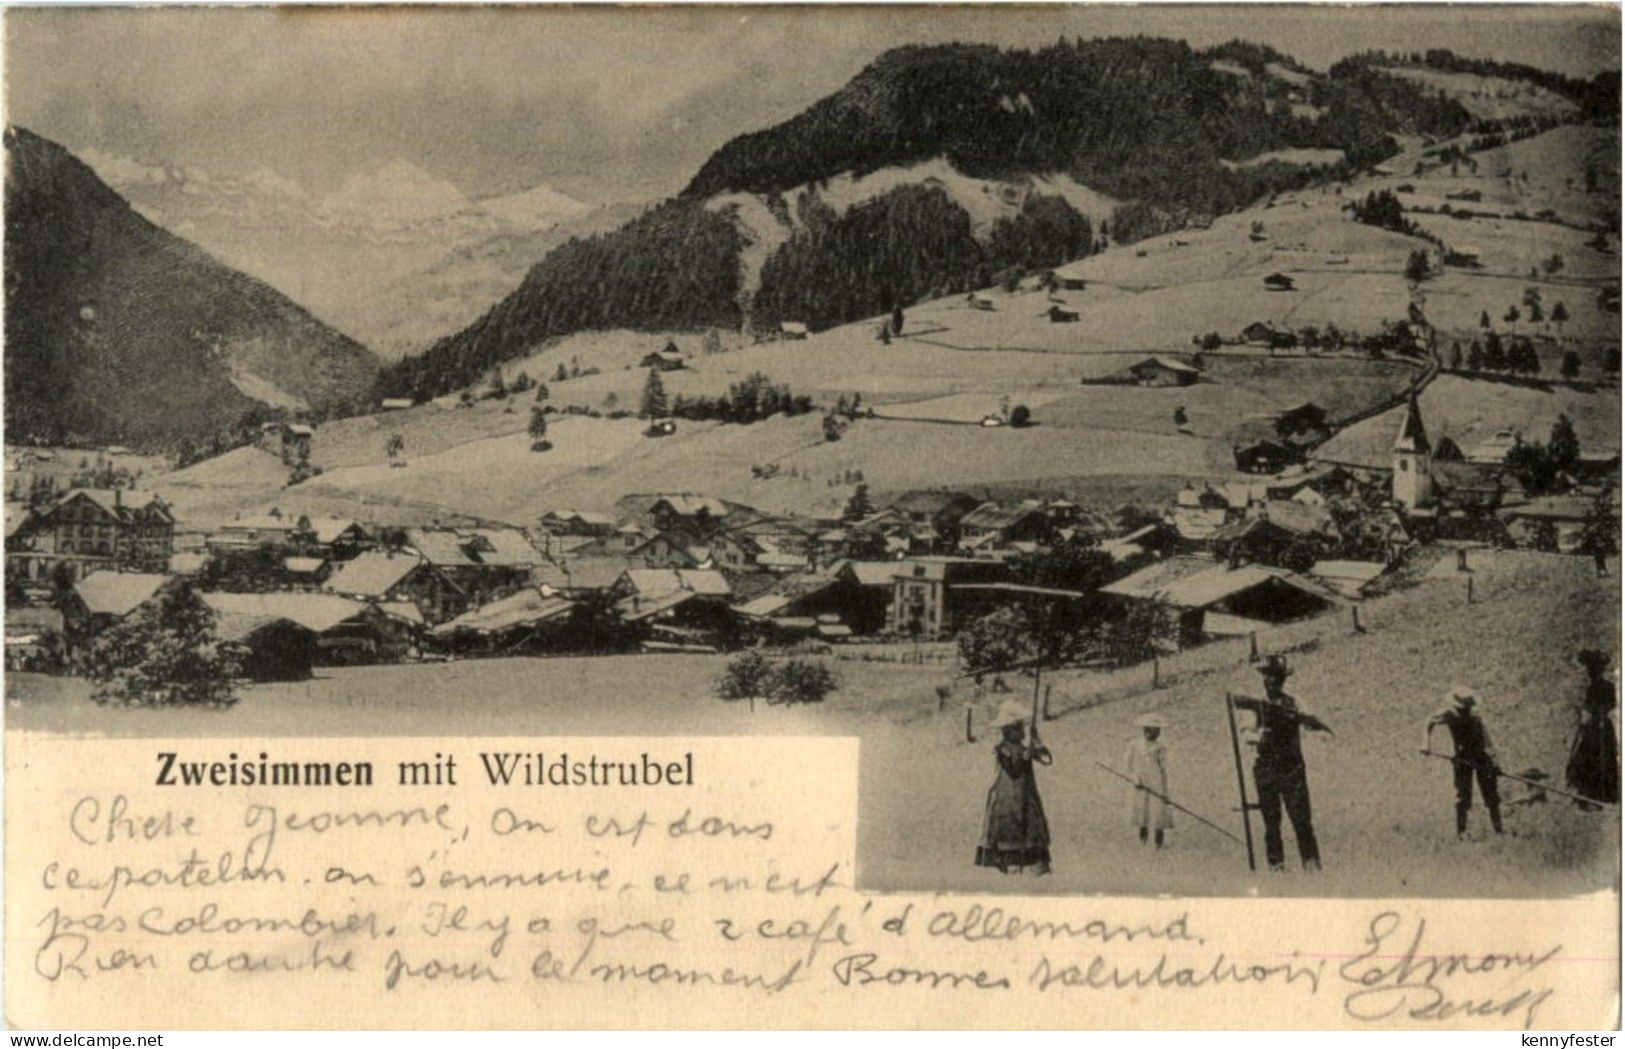 Zweisimmen mit Wildstrubel
Chère Jeanne, on est dans
ce patelin. on s'ennuie, ce n'est
pas Colombier. Il y a que 2 café d'Allemand.
Rien d'autre pour le moment Bonnes salutations Edmond
delcampe.net
kennyfester